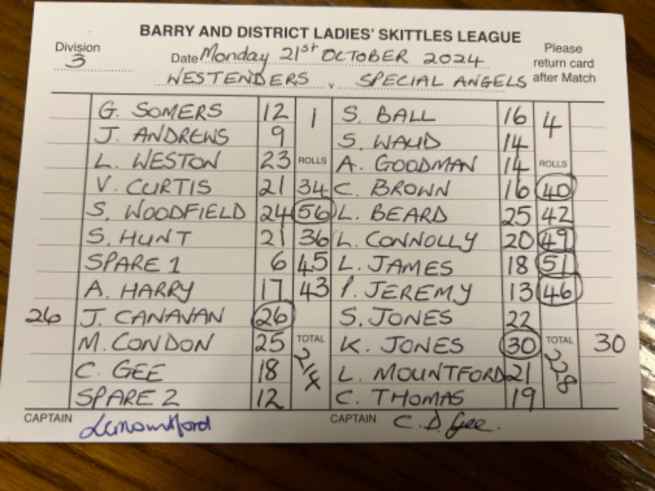 BARRY AND DISTRICT LADIES' SKITTLES LEAGUE
Division 3 Date Monday 21st OCTOBER 2024 Please return card after Match
WESTENDERS v SPECIAL ANGELS
G. SOMERS 12 1 S. BALL 16 4
J. ANDREWS 9 S. WAUD 14
L. WESTON 23 ROLLS A. GOODMAN 14 ROLLS
V. CURTIS 21 34 C. BROWN 16 40
S. WOODFIELD 24 56 L. BEARD 25 42
S. HUNT 21 36 L. CONNOLLY 20 49
SPARE 1 6 45 L. JAMES 18 51
A. HARRY 17 43 P. JEREMY 13 46
26 J. CANAVAN 26 S. JONES 22
M. CONDON 25 TOTAL 214 K. JONES 30 TOTAL 228 30
C. GEE 18 L. MOUNTFORD 21
SPARE 2 12 C. THOMAS 19
CAPTAIN LMountford CAPTAIN C.D. Gee.